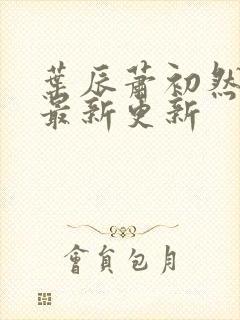 葉辰蕭初然
最新更新
會員包月